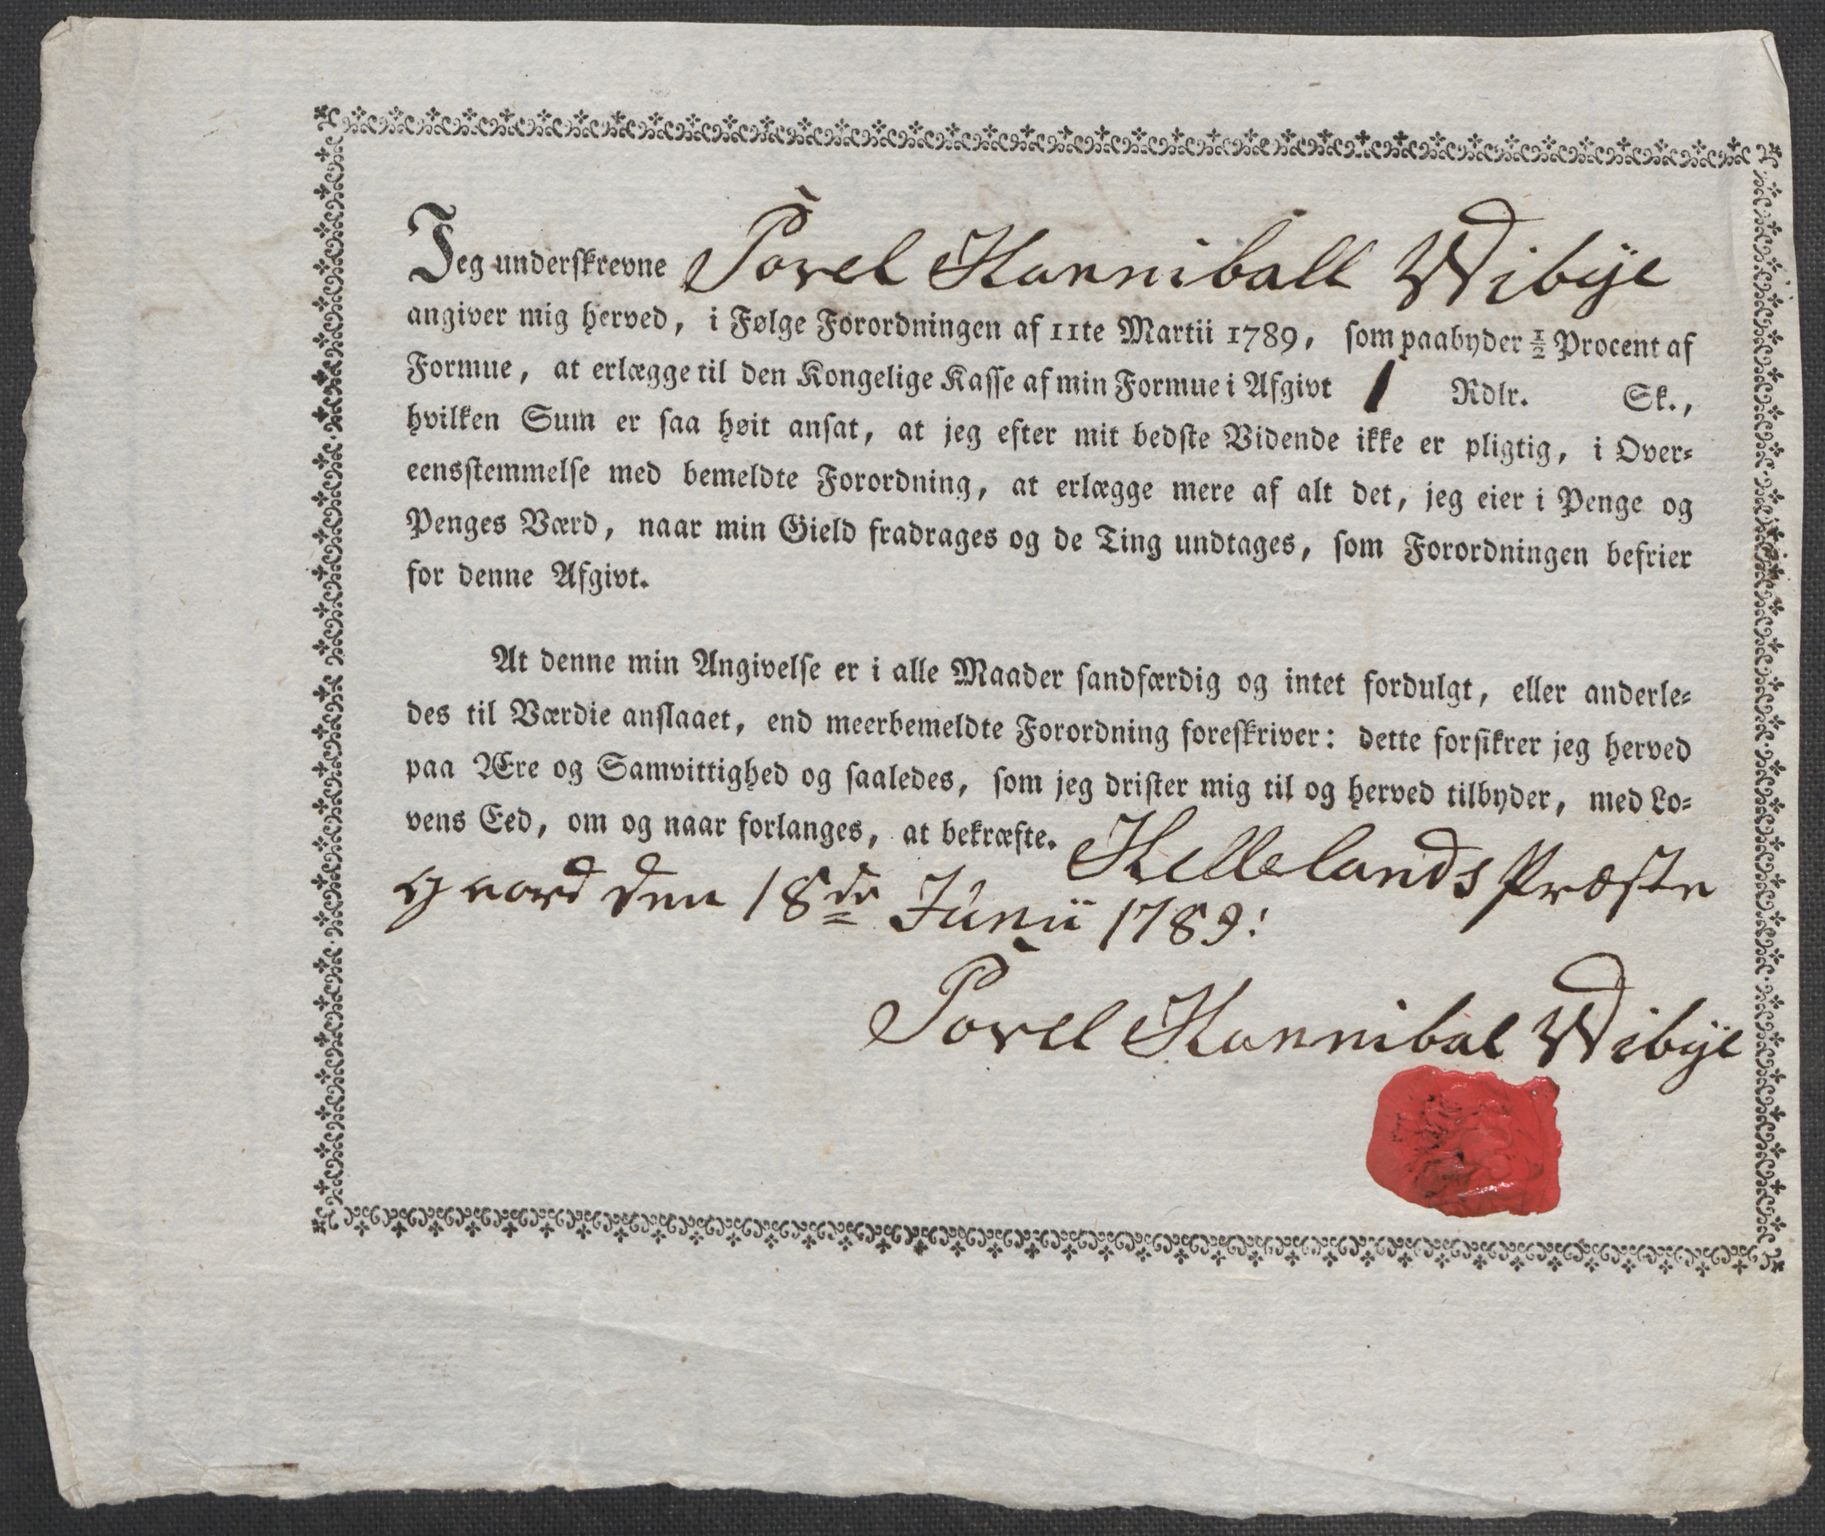 Jeg underskrevne Povel Hanniball Wibÿe
angiver mig herved, i Følge Forordningen af 11te Martii 1789, som paabyder ½ Procent af
Formue, at erlægge til den Kongelige Kasse af min Formue i Afgivt 1 Rdlr. Sk.,
hvilken Sum er saa høit ansat, at jeg efter mit bedste Vidende ikke er pligtig, i Over-
eensstemmelse med bemeldte Forordning, at erlægge mere af alt det, jeg eier i Penge og
Penges Værd, naar min Gield fradrages og de Ting undtages, som Forordningen befrier
for denne Afgivt.
At denne min Angivelse er i alle Maader sandfærdig og intet fordulgt, eller anderle-
des til Værdie anslaaet, end meerbemeldte Forordning foreskriver: dette forsikrer jeg herved
paa Ære og Samvittighed og saaledes, som jeg drister mig til og herved tilbyder, med Lo-
vens Eed, om og naar forlanges, at bekræfte. Hellelands Præste
gaard den 18de Junii 1789:
Povel Hannibal Wibÿe